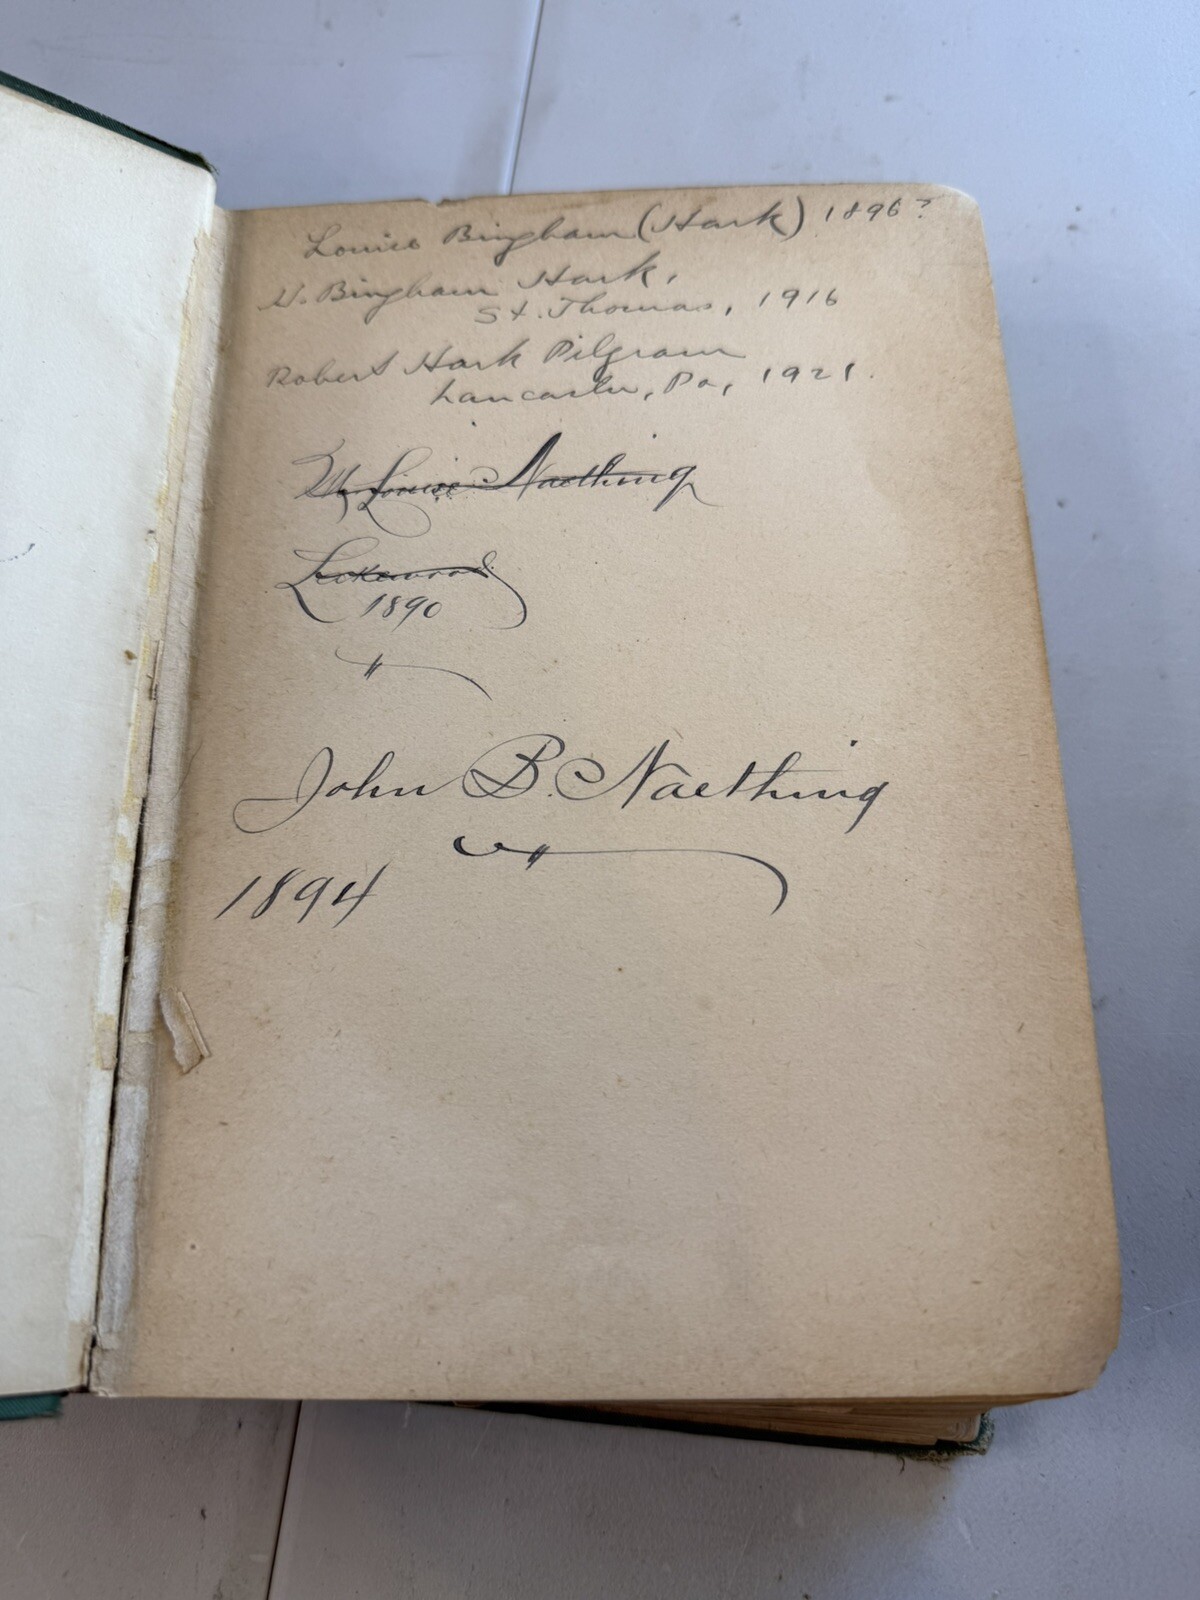 Louise Bingham (Hark) 1896?
N. Bingham Hark,
St. Thomas, 1916
Robert Hark Pilgram
Lancaster, Pa, 1921.
M. Louise Naething
Lakewood
1890
"
John B. Naething
1894